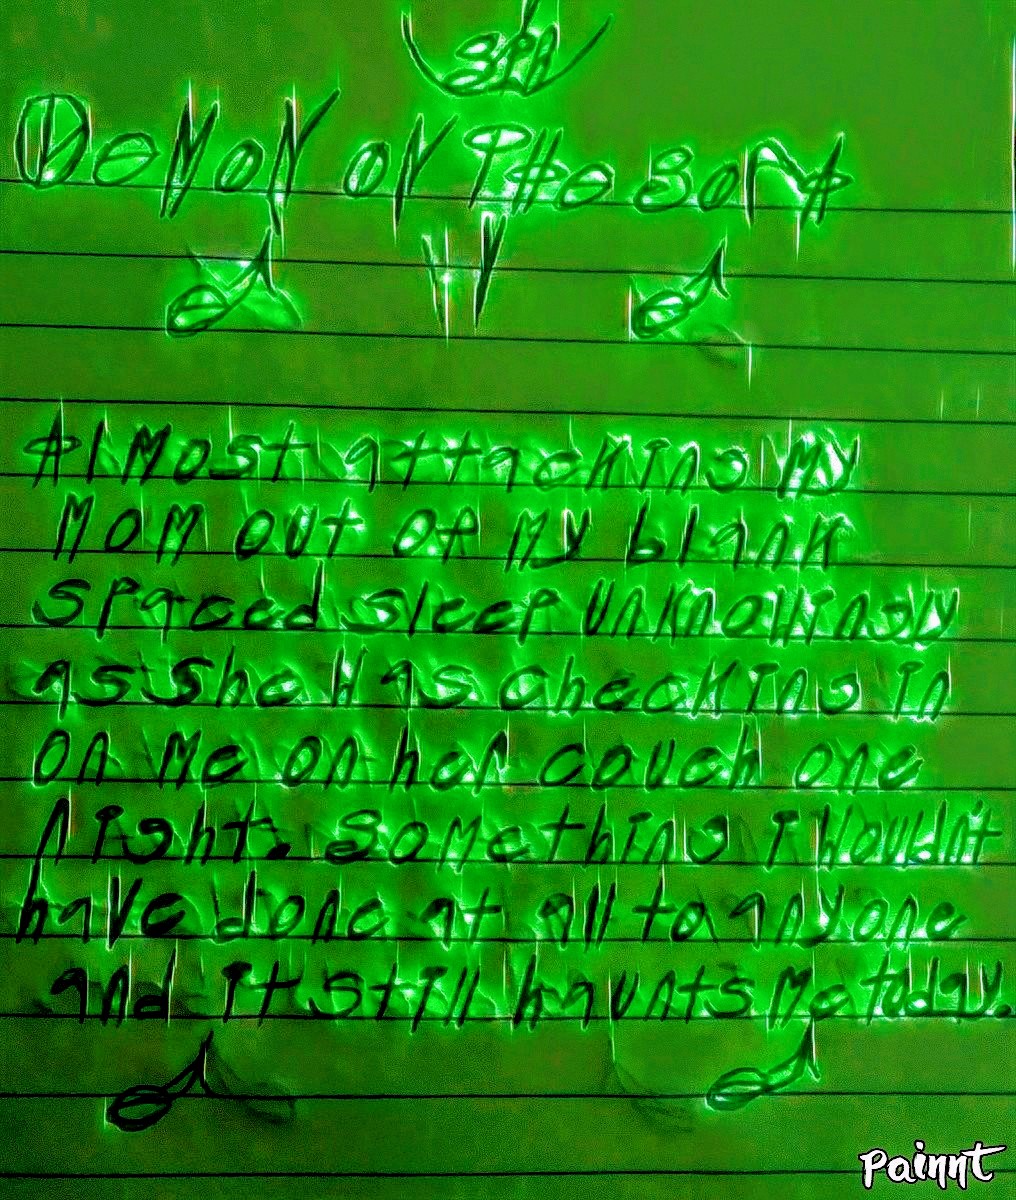 SPA
DeMoN oN The SofA
AlMost attacking My
MoM out of My blank
spaced sleep unknowingly
as she was checking in
on Me on her couch one
night. SoMething i wouldn't
have done at all to anyone
and it still haunts Me today.
Painnt